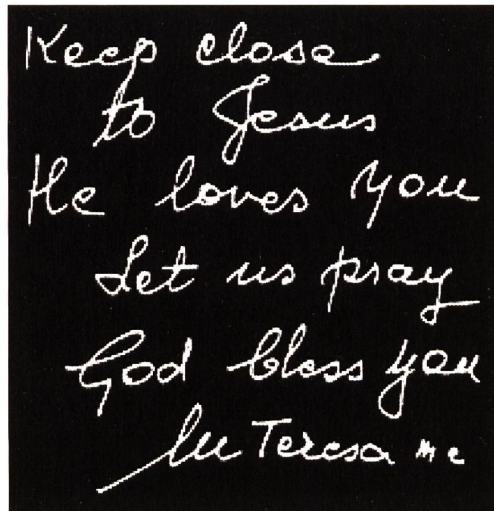 Keep close
to Jesus
He loves you
Let us pray
God bless you
lu Teresa mc